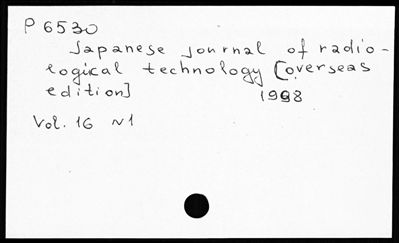 P 6530
Japanese journal of radio-
logical technology [overseas
edition]
1998
Vol. 16 N1